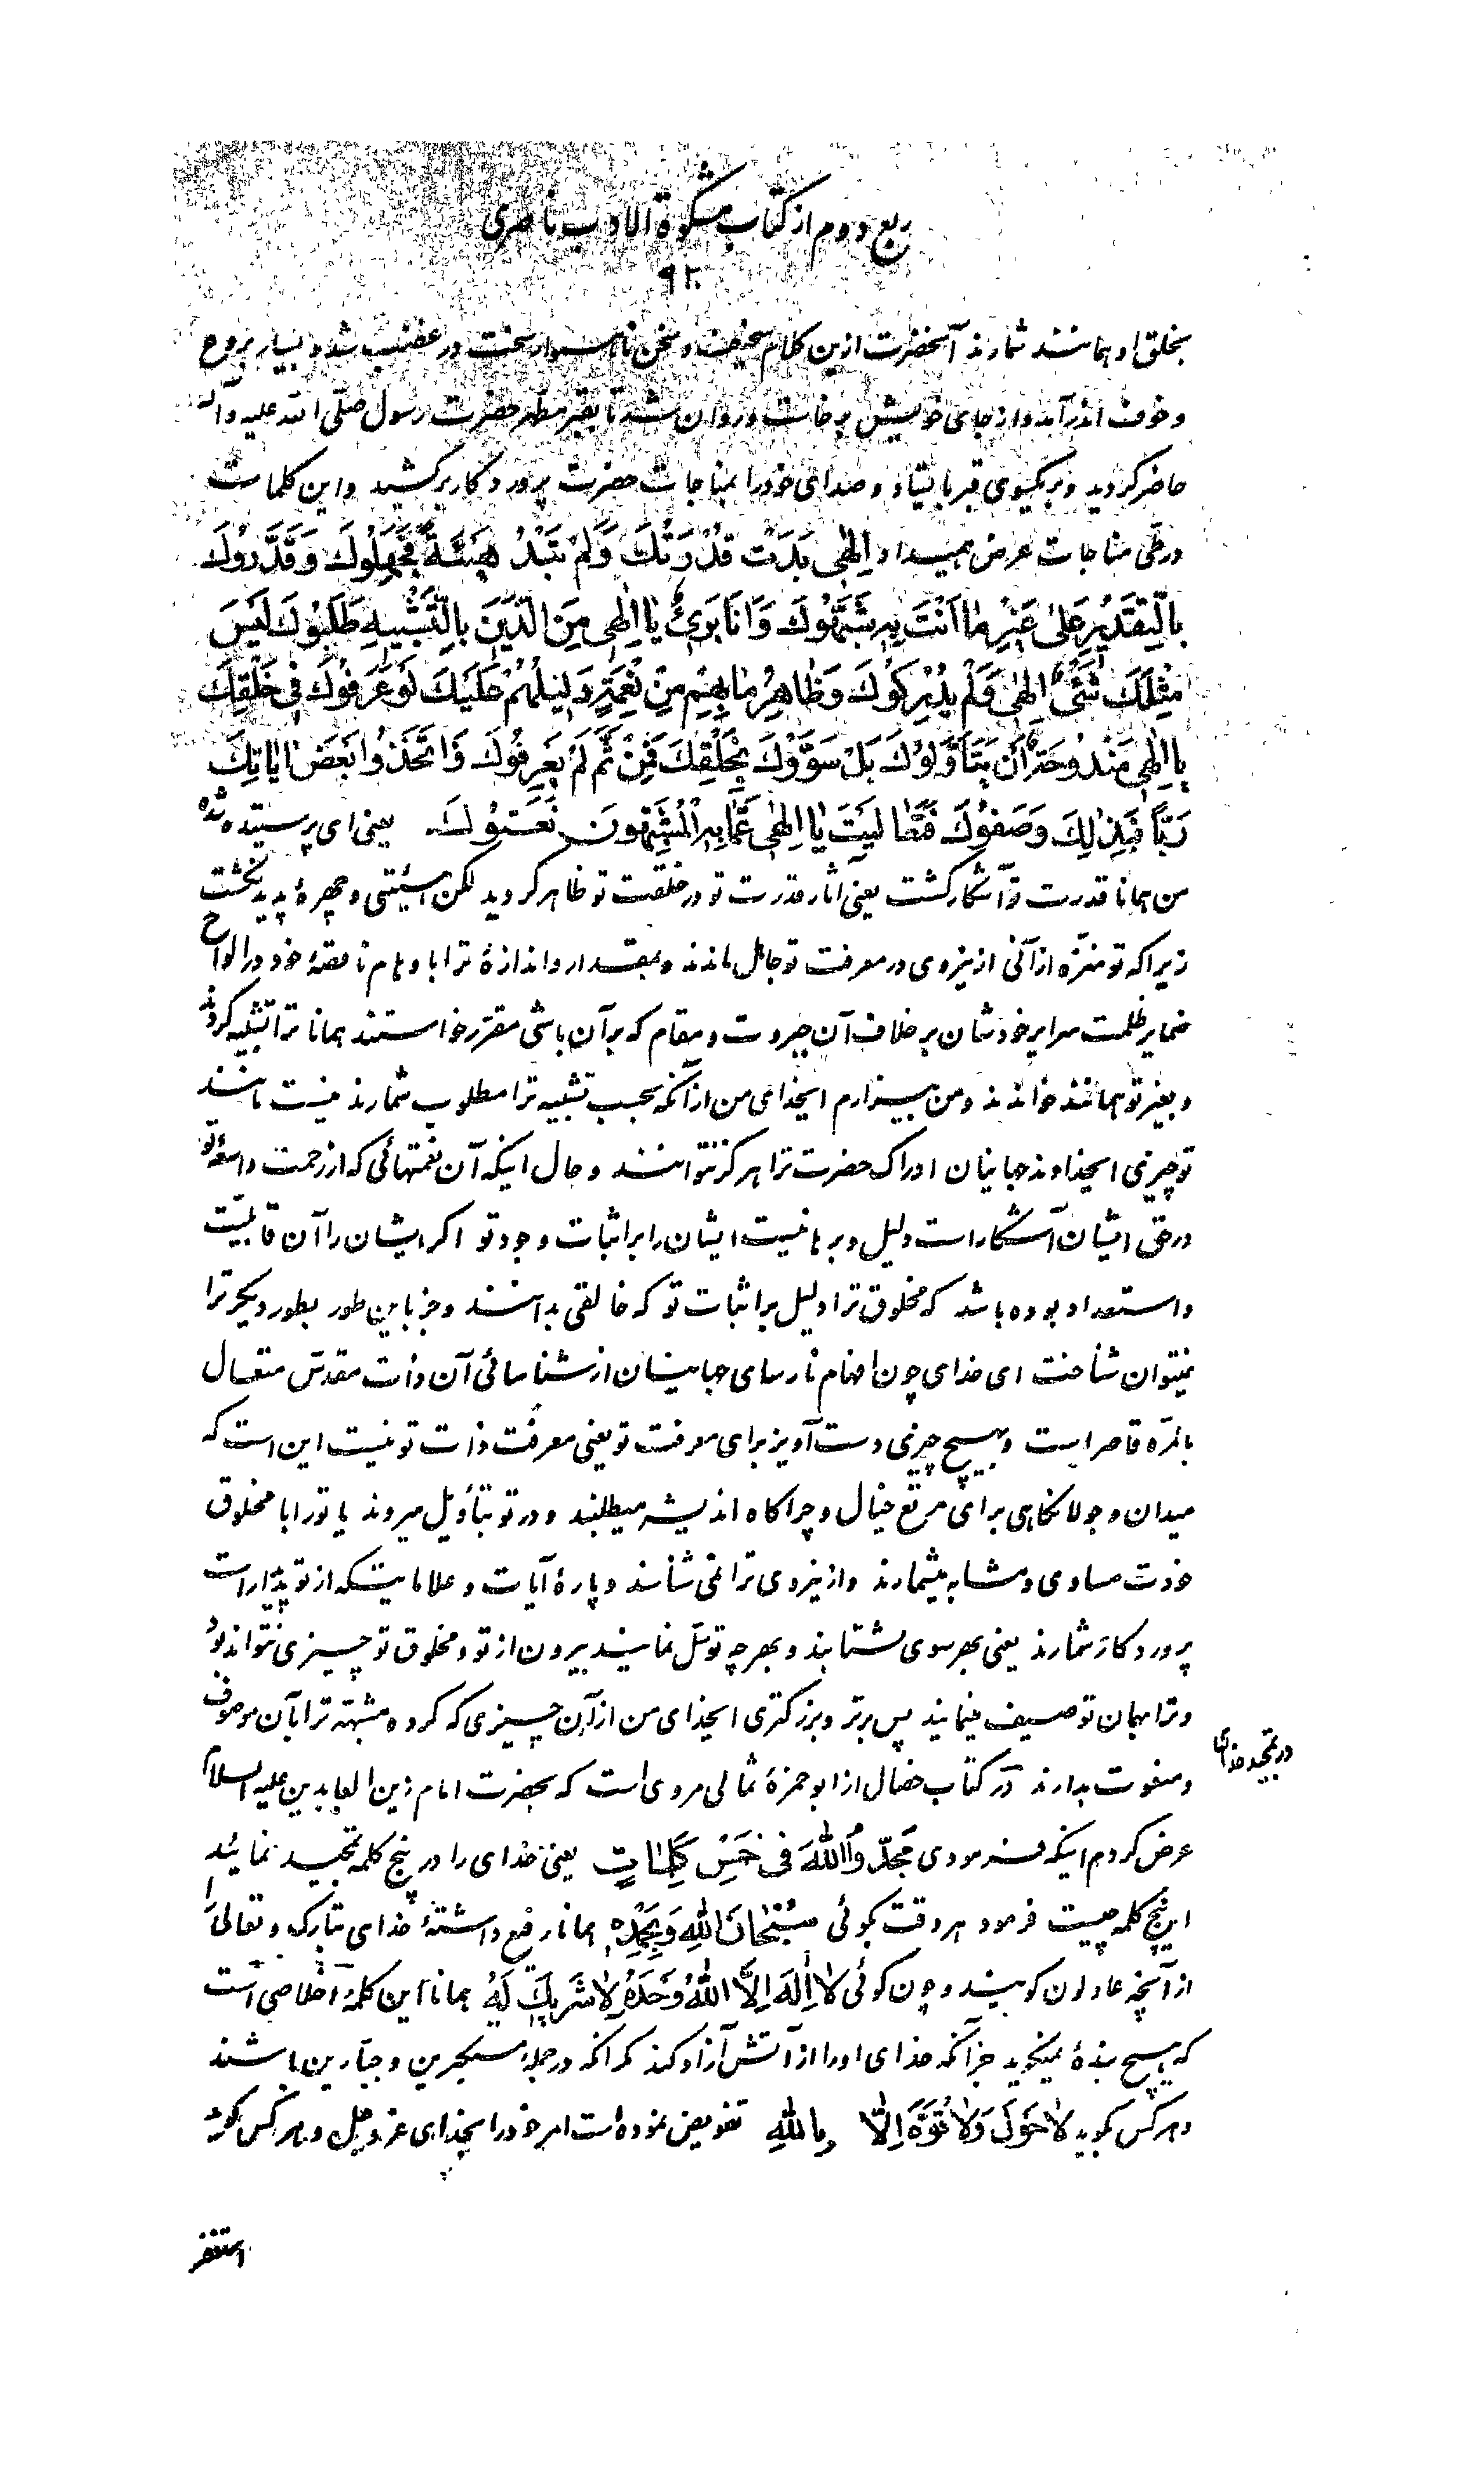 ربع دوم از کتاب مشکوة الادب ناصری
۹۲۰
بخلق او همانند شمارند آنحضرت ازین کلام سخیف و سخن ناهموار سخت در غضب شد و بسیار بروع
و خوف اندر آمد و از جای خویش برخاست و روان شد تا بقبر مطهر حضرت رسول صلّی الله علیه و آله
حاضر گردید و بر یکسوی قبر بایستاد و صدای خود را بمناجات حضرت پروردگار برکشید و این کلمات
در طّی مناجات عرض همیداد اِلٰهی بَدَتْ قُدْرَتُكَ وَلَمْ تَبْدُ هَیْئَةٌ فَجَهِلُوكَ وَقَدَّرُوكَ
بِالتَّقْدیرِ عَلیٰ غَیْرِ مٰا اَنْتَ بِهِ شَبَّهُوكَ وَ اَنَا بَرِیٌٔ یٰا اِلٰهی مِنَ الَّذینَ بِالتَّشْبیهِ طَلَبُوكَ لَیْسَ
مِثْلَكَ شَیْئٌ اِلٰهی وَلَمْ یُدْرِكُوكَ وَ ظٰاهِرُ مٰا بِهِمْ مِنْ نِعْمَةٍ دَلیلُهُمْ عَلَیْكَ لَوْ عَرَفُوكَ فی خَلْقِكَ
یا اِلٰهی مَنْدُوحَةٌ أَنْ یَتَأَوَّلُوكَ بَلْ سَوَّوْكَ بِخَلْقِكَ فَمِنْ ثَمَّ لَمْ یَعْرِفُوكَ وَاتَّخَذُوا بَعْضَ اٰیاتِكَ
رَبّاً فَبِذٰلِكَ وَصَفُوكَ فَتَعٰالَیْتَ یٰا اِلٰهی عَمّٰا بِهِ الْمُشَبِّهُونَ نَعَتُوكَ یعنی ای پرستیده شده
من همانا قدرت تو آشکار گشت یعنی آثار قدرت تو در خلقت تو ظاهر گردید لکن هیئتی و چهرهٔ پدید نگشت
زیرا که تو منزّه از آنی ازینروی در معرفت تو جاهل ماندند و بمقدار و اندازهٔ ترا با وهام ناقصهٔ خود در الواح
ضمایر ظلمت سرایر خودشان بر خلاف آن جبروت و مقام که بر آن باشی مقرّر خواستند همانا ترا تشبیه کردند
و بغیر تو همانند خواندند و من بیزارم ایخدای من از آنکه بحسب تشبیه ترا مطلوب شمارند نیست مانند
تو چیزی ایخداوند جهانیان ادراک حضرت ترا هرگز نتوانند و حال اینکه آن نعمتهائی که از رحمت واسعهٔ تو
در حق ایشان آشکار است دلیل و برهانیست ایشان را بر اثبات وجود تو اکر ایشان را آن قابلیّت
و استعداد بوده باشد که مخلوق ترا دلیل بر اثبات تو که خالقی بدانند و جز باین طور بطور دیگر ترا
نیتوان شناخت ای خدای چون افهام نارسای جهانیان از شناسائی آن ذات مقدّس متعال
بالمرّه قاصر است و بهیچ چیزی دست آویز برای معرفت تو یعنی معرفت ذات تو نیست این است که
میدان و جولانگاهی برای مرتع خیال و چراگاه اندیشه میطلبند و در تو بتأویل میروند یا تو را با مخلوق
خودت مساوی و مشابه میشمارند و ازینروی ترا نمی شناسند و پارهٔ آیات و علاماتیکه از تو پدیدار است
پروردگار شمارند یعنی بهر سوی بشتابند و بهر چه توسّل نمایند بیرون از تو و مخلوق تو چیزی نتواند بود
و ترا بهمان توصیف مینمایند پس برتر و بزرگتری ایخدای من از آن چیزی که گروه مشبّهه ترا بآن موصوف
و منعوت بدارند در کتاب خصال از ابو حمزهٔ ثمالی مروی است که بحضرت امام زین العابدین علیه السلام
در تمجید خدای
عرض کردم اینکه فرمودی مَجِّدُواللّٰهَ فی خَمْسِ كَلِمٰاتٍ یعنی خدای را در پنج کلمه تمجید نمائید
این پنج کلمه چیست فرمود هر وقت بگوئی سُبْحٰانَ اللّٰهِ وَبِحَمْدِهِ همانا رفیع داشتهٔ خدای تبارک و تعالی را
از آنچه عادلون گویند و چون گوئی لٰا اِلٰهَ اِلَّا اللّٰهُ وَحْدَهُ لٰا شَریكَ لَهُ همانا این کلمهٔ اخلاصی است
که هیچ بندهٔ نمیگوید جز آنکه خدای او را از آتش آزاد کند مگر آنکه در جملهٔ مستکبرین و جبّارین باشند
و هر کس گوید لٰا حَوْلَ وَلٰا قُوَّةَ اِلّٰا بِاللّٰهِ تفویض نموده است امر خود را بخدای عز و جل و هر کس گوید
استغفر